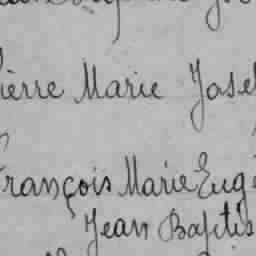 ierre Marie Jose
rançois Marie Eug
Jean Baptis